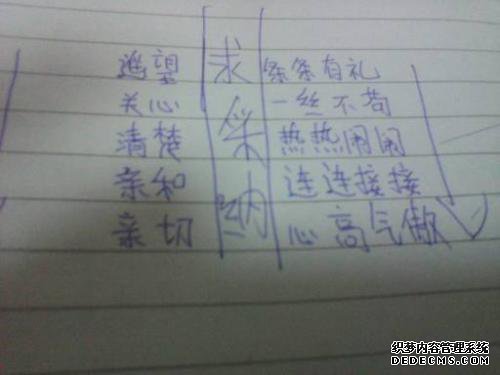 遥望 求 条条有礼
关心 一丝不苟
清楚 采 热热闹闹
亲和 连连接接
亲切 纳 心高气傲
织梦内容管理系统
DEDECMS.COM